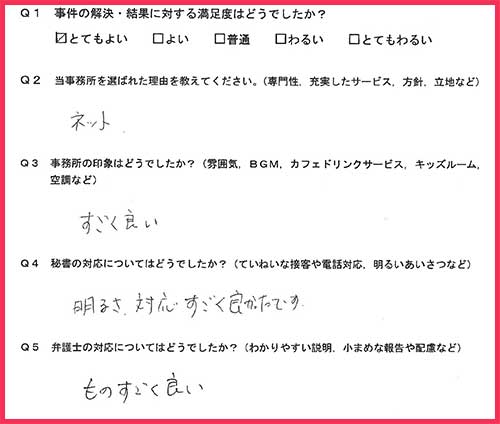 Q1 事件の解決・結果に対する満足度はどうでしたか？
☑とてもよい □よい □普通 □わるい □とてもわるい
Q2 当事務所を選ばれた理由を教えてください。（専門性，充実したサービス，方針，立地など）
ネット
Q3 事務所の印象はどうでしたか？（雰囲気，BGM，カフェドリンクサービス，キッズルーム，
空調など）
すごく良い
Q4 秘書の対応についてはどうでしたか？（ていねいな接客や電話対応，明るいあいさつなど）
明るさ、対応すごく良かたです
Q5 弁護士の対応についてはどうでしたか？（わかりやすい説明，小まめな報告や配慮など）
ものすごく良い